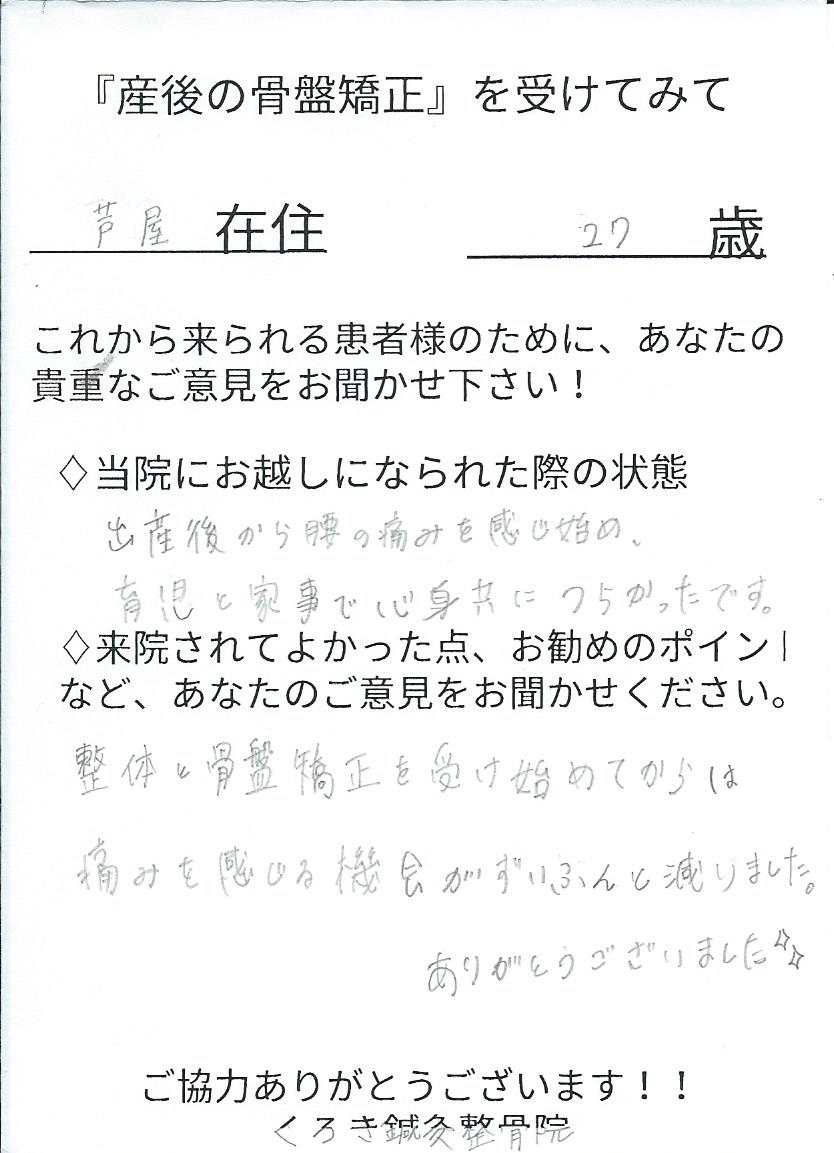 『産後の骨盤矯正』を受けてみて
芦屋 在住 27 歳
これから来られる患者様のために、あなたの
貴重なご意見をお聞かせ下さい！
◇当院にお越しになられた際の状態
出産後から腰の痛みを感じ始め、
育児と家事で心身共につらかったです。
◇来院されてよかった点、お勧めのポイント
など、あなたのご意見をお聞かせください。
整体と骨盤矯正を受け始めてからは
痛みを感じる機会がずいぶんと減りました。
ありがとうございました✨
ご協力ありがとうございます！！
くろき鍼灸整骨院